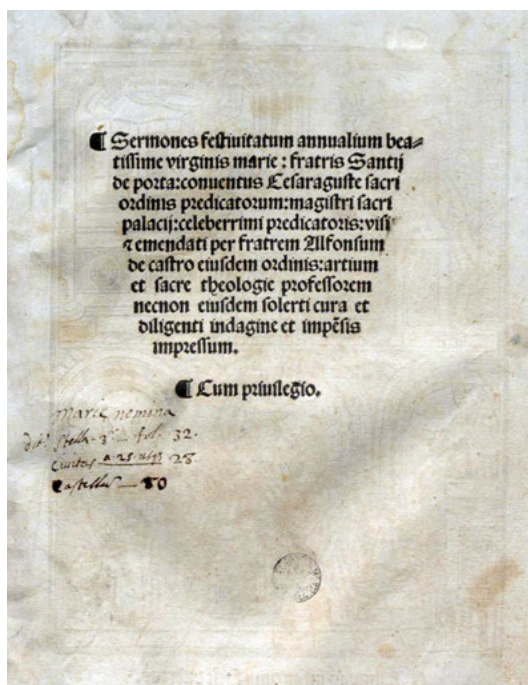 ¶ Sermones festiuitatum annualium bea⸗
tissime virginis marie : fratris Santij
de porta:conuentus Cesaraguste sacri
ordinis predicatorum:magistri sacri
palacij:celeberrimi predicatoris:visi
⁊ emendati per fratrem Alfonsum
de castro eiusdem ordinis:artium
et sacre theologie professorem
necnon eiusdem solerti cura et
diligenti indagine et impẽsis
impressum.
¶ Cum priuilegio.
Marię nomina
Stella 3ª fol. 32.
Ciuitas a 25 usq3 28
Castellum 80